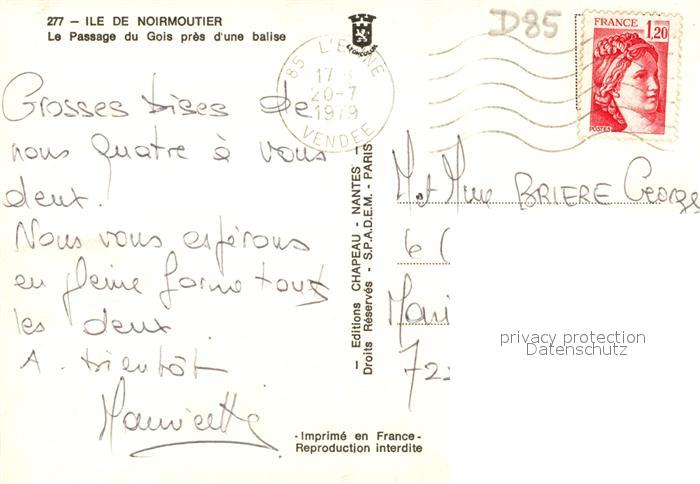 277 – ILE DE NOIRMOUTIER
Le Passage du Gois près d'une balise
LYONCOLOR
D85
85 L'EPINE
17 H
20-7
1979
VENDEE
FRANCE
1,20
POSTES
Grosses bises de
nous quatre à vous
deux.
Nous vous espérons
en pleine forme tous
les deux.
A bientôt
Mauricette
– Editions CHAPEAU - NANTES –
Droits Réservés - S.P.A.D.E.M. - PARIS
M. et Mme BRIERE George
6
72
privacy protection
Datenschutz
- Imprimé en France -
Reproduction interdite